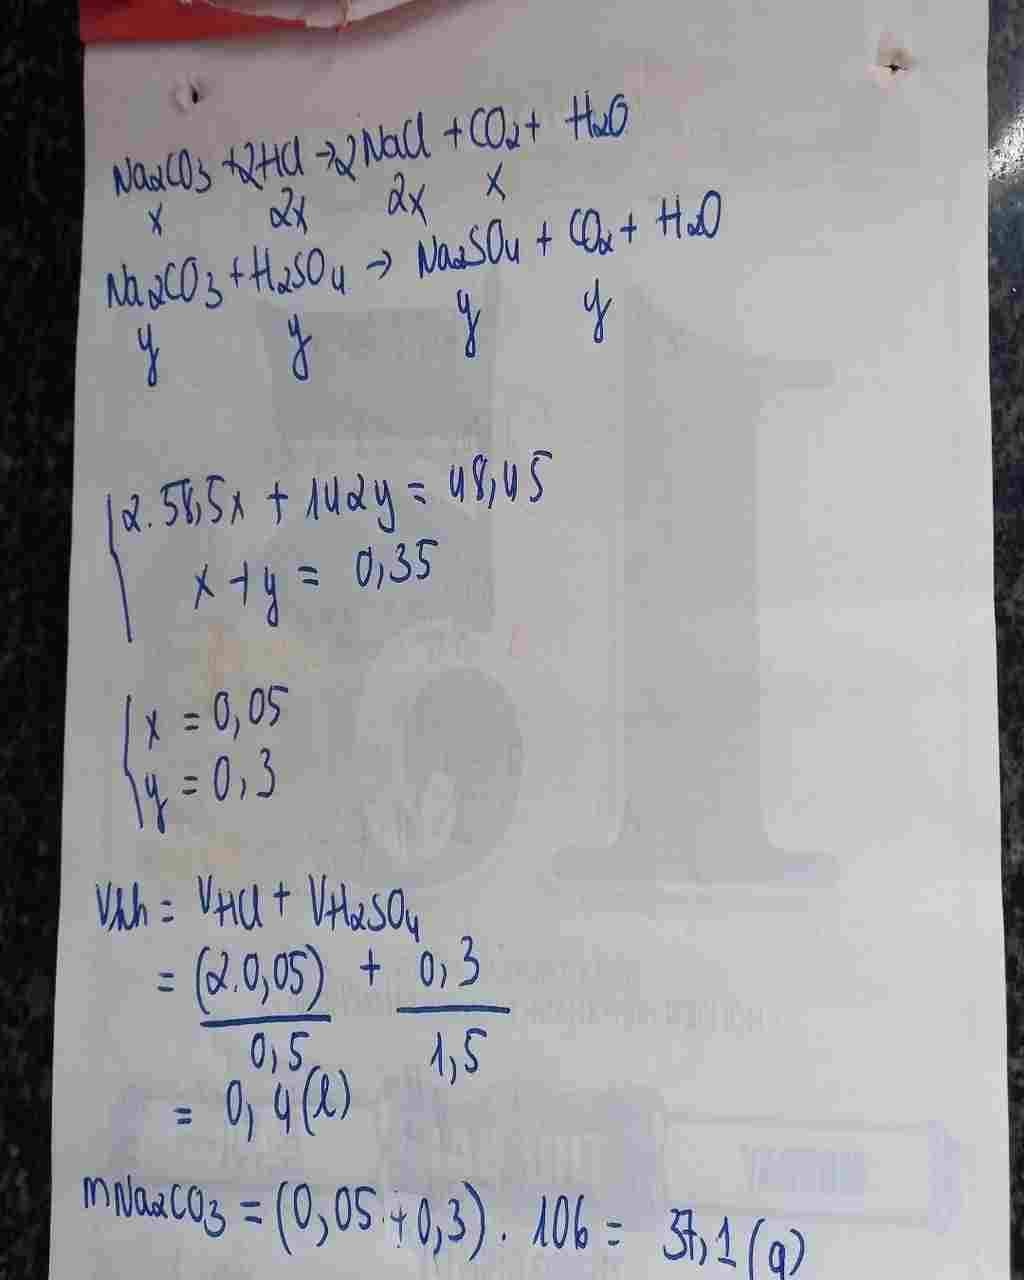 Na2CO3 + 2HCl → 2NaCl + CO2 + H2O
x 2x 2x x
Na2CO3 + H2SO4 → Na2SO4 + CO2 + H2O
y y y y
2.58,5x + 142y = 48,45
x + y = 0,35
x = 0,05
y = 0,3
Vhh = VHCl + VH2SO4
= (2.0,05) + 0,3
0,5 1,5
= 0,4(l)
mNa2CO3 = (0,05 + 0,3) . 106 = 37,1 (g)